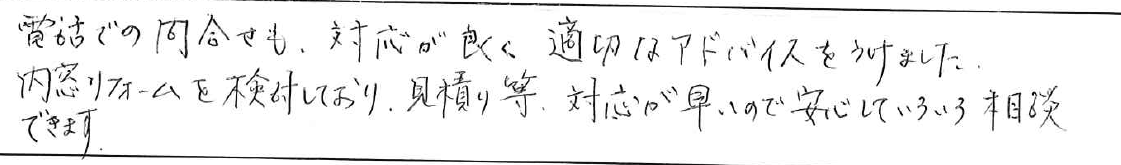 電話での問合せも、対応が良く、適切なアドバイスをうけました.
内窓リフォームを検討しており、見積り等、対応が早いので安心していろいろ相談
できます.